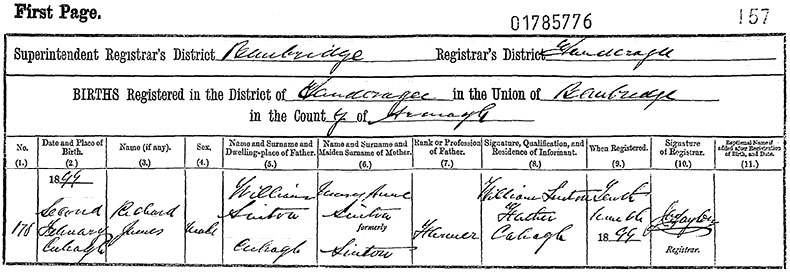 First Page.
01785776
157
Superintendent Registrar's District Banbridge Registrar's District Tandragee
BIRTHS Registered in the District of Tandragee in the Union of Banbridge
in the County of Armagh
No. (1.)
Date and Place of Birth. (2.)
Name (if any). (3.)
Sex. (4.)
Name and Surname and Dwelling-place of Father. (5.)
Name and Surname and Maiden Surname of Mother. (6.)
Rank or Profession of Father. (7.)
Signature, Qualification, and Residence of Informant. (8.)
When Registered. (9.)
Signature of Registrar. (10.)
Baptismal Name if added after Registration of Birth, and Date. (11.)
178
1899 Second February Cabragh
Richard James
Male
William Sinton Cabragh
Anne Sinton formerly Sinton
Farmer
William Sinton Father Cabragh
Tenth 1899
Registrar.